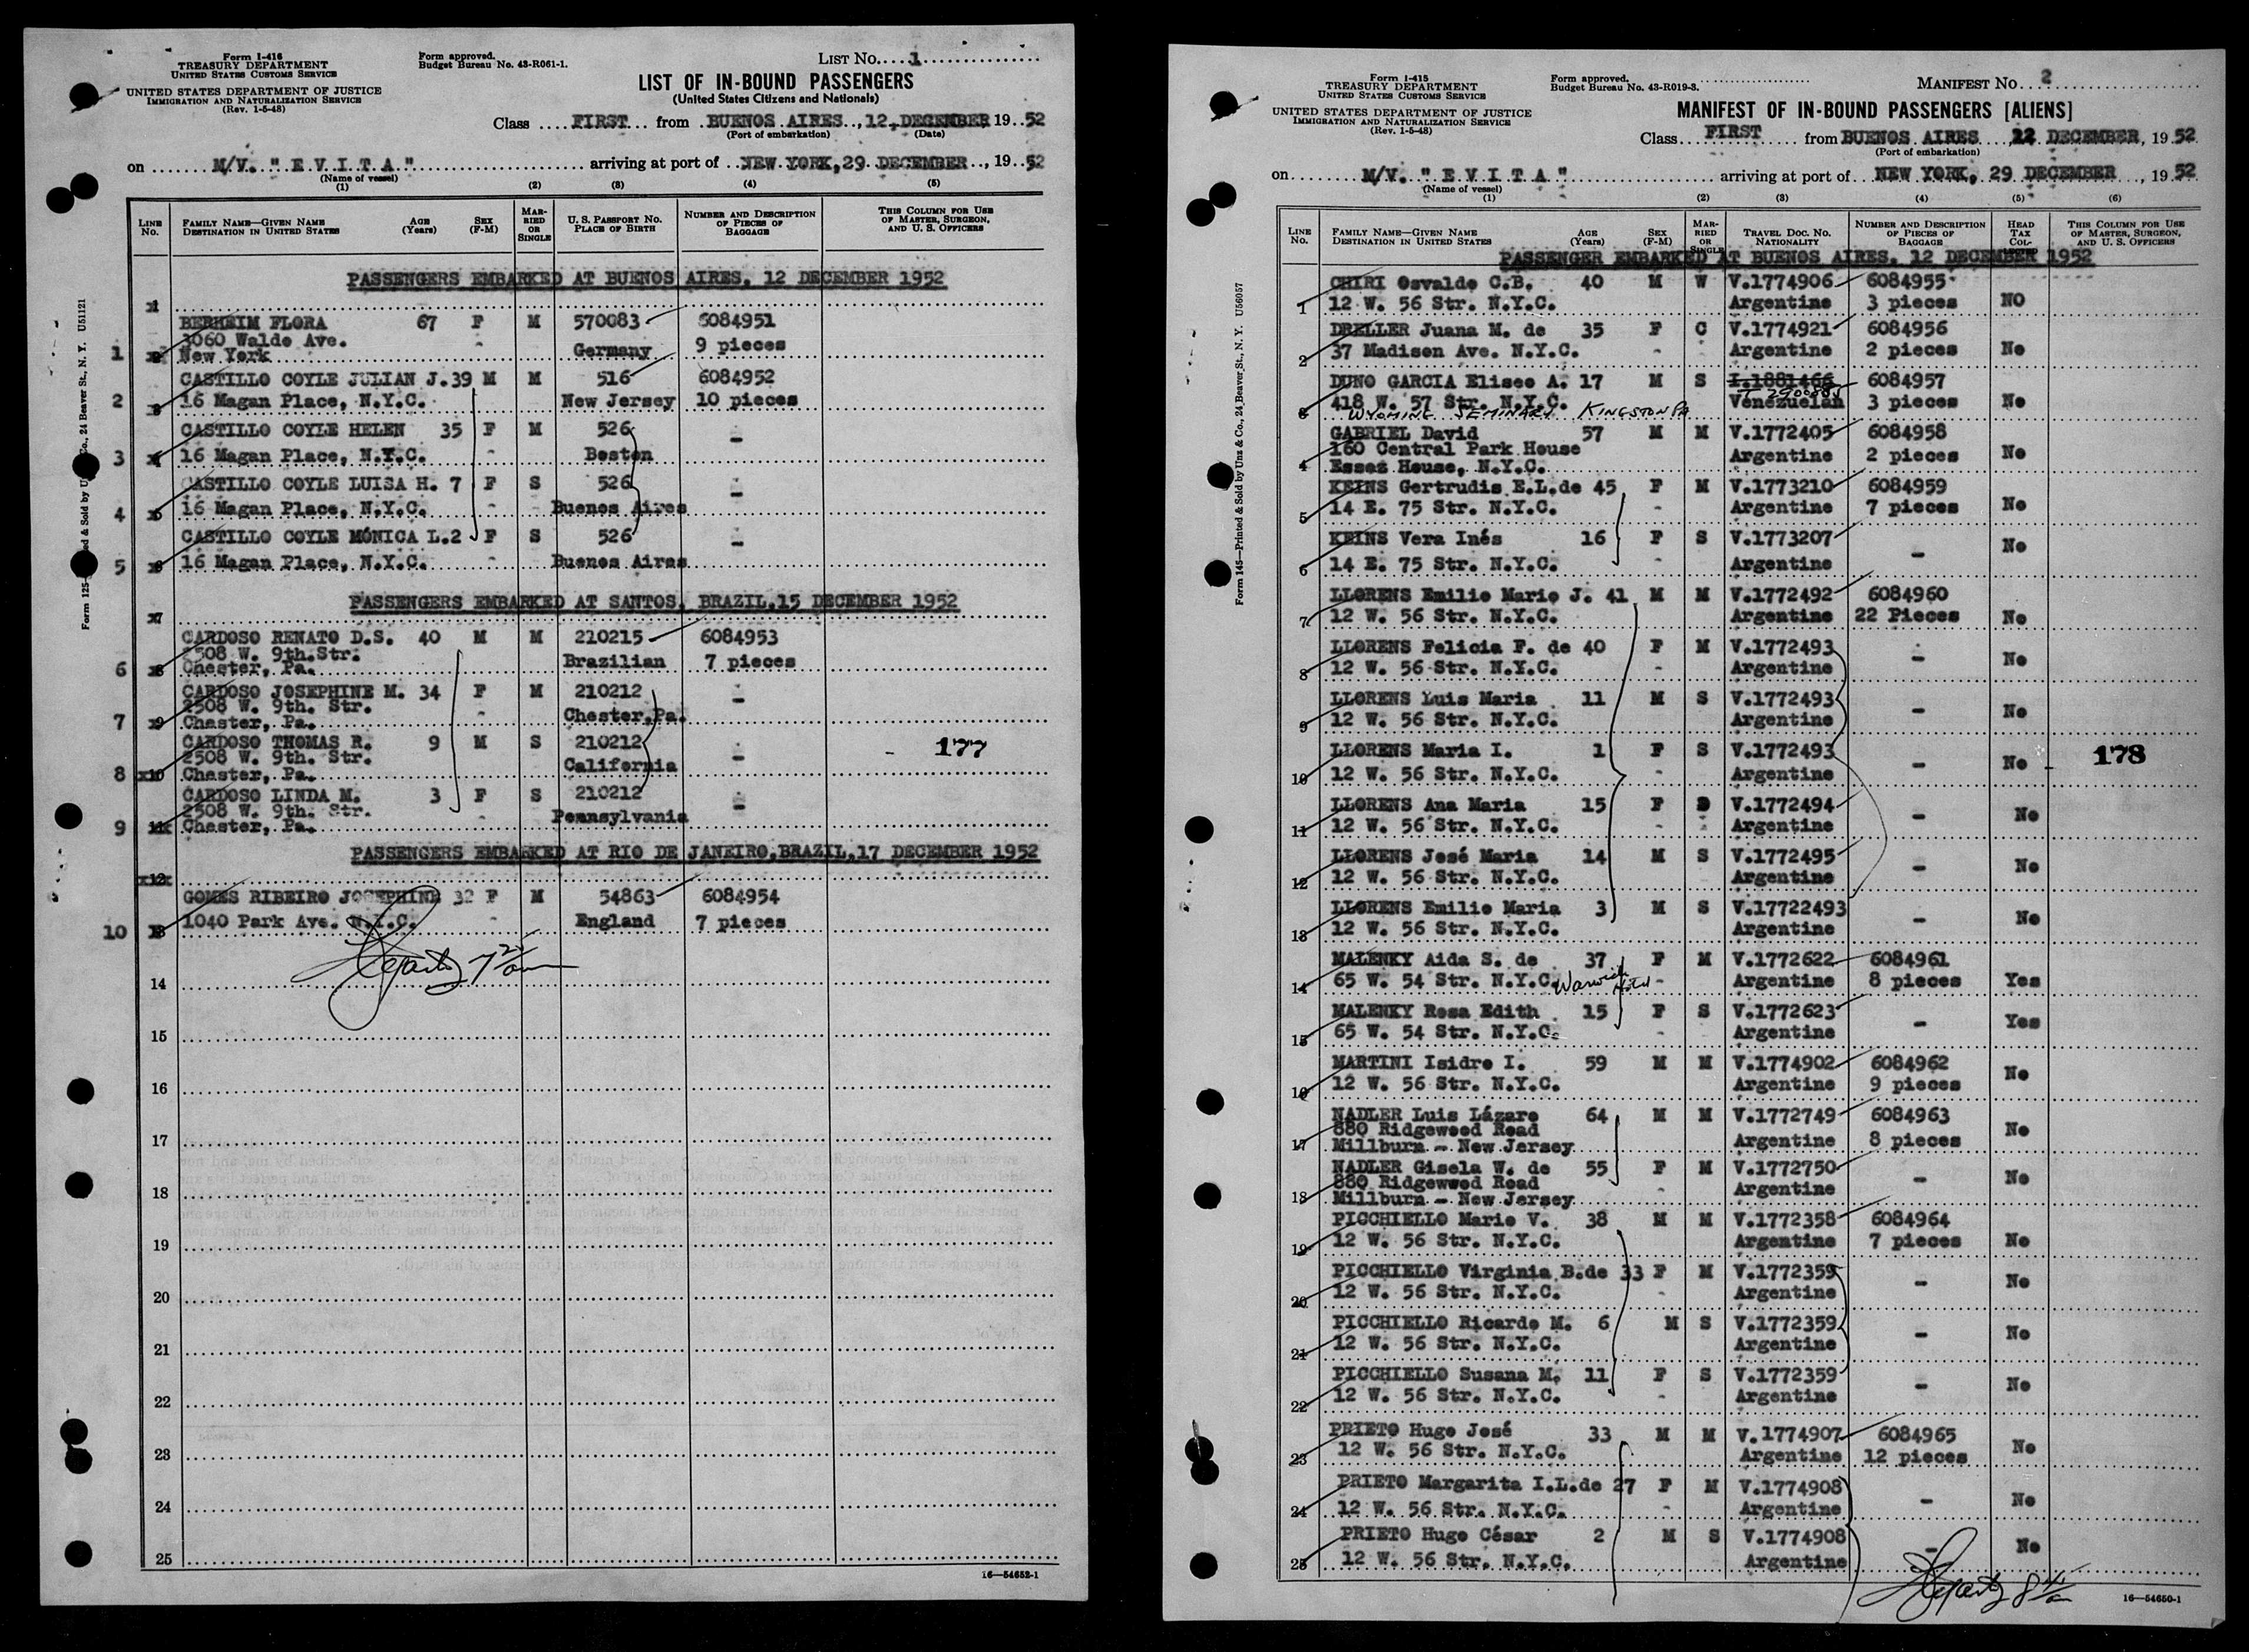 Form I-416
TREASURY DEPARTMENT
UNITED STATES CUSTOMS SERVICE
UNITED STATES DEPARTMENT OF JUSTICE
IMMIGRATION AND NATURALIZATION SERVICE
(Rev. 1-5-48)
Form approved.
Budget Bureau No. 43-R061-1.
LIST No. 1
LIST OF IN-BOUND PASSENGERS
(United States Citizens and Nationals)
Class FIRST from BUENOS AIRES, 12, DECEMBER 19 52
(Port of embarkation) (Date)
on M/V. "E V I T A" arriving at port of NEW YORK, 29 DECEMBER, 19 52
(Name of vessel)
(1) (2) (3) (4) (5)
LINE No. FAMILY NAME—GIVEN NAME DESTINATION IN UNITED STATES AGE (Years) SEX (F-M) MARRIED OR SINGLE U. S. PASSPORT NO. PLACE OF BIRTH NUMBER AND DESCRIPTION OF PIECES OF BAGGAGE THIS COLUMN FOR USE OF MASTER, SURGEON, AND U. S. OFFICERS
PASSENGERS EMBARKED AT BUENOS AIRES, 12 DECEMBER 1952
BERHEIM FLORA 67 F M 570083 6084951
3060 Waldo Ave.
1 New York Germany 9 pieces
CASTILLO COYLE JULIAN J. 39 M M 516 6084952
2 16 Magan Place, N.Y.C. New Jersey 10 pieces
CASTILLO COYLE HELEN 35 F M 526 -
3 16 Magan Place, N.Y.C. - Boston
CASTILLO COYLE LUISA H. 7 F S 526 -
4 16 Magan Place, N.Y.C. - Buenos Aires
CASTILLO COYLE MÓNICA L. 2 F S 526 -
5 16 Magan Place, N.Y.C. - Buenos Aires
PASSENGERS EMBARKED AT SANTOS, BRAZIL, 15 DECEMBER 1952
CARDOSO RENATO D.S. 40 M M 210215 6084953
2508 W. 9th. Str.
6 Chester, Pa. Brazilian 7 pieces
CARDOSO JOSEPHINE M. 34 F M 210212 -
2508 W. 9th. Str.
7 Chester, Pa. Chester, Pa.
CARDOSO THOMAS R. 9 M S 210212 -
2508 W. 9th. Str.
8 Chester, Pa. California
177
CARDOSO LINDA M. 3 F S 210212 -
2508 W. 9th. Str.
9 Chester, Pa. Pennsylvania
PASSENGERS EMBARKED AT RIO DE JANEIRO, BRAZIL, 17 DECEMBER 1952
GOMES RIBEIRO JOSEPHINE 32 F M 54863 6084954
10 1040 Park Ave. N.Y.C. - England 7 pieces
14
15
16
17
18
19
20
21
22
23
24
25
16—54652-1
Form I-415
TREASURY DEPARTMENT
UNITED STATES CUSTOMS SERVICE
UNITED STATES DEPARTMENT OF JUSTICE
IMMIGRATION AND NATURALIZATION SERVICE
(Rev. 1-5-48)
Form approved.
Budget Bureau No. 43-R019-3.
MANIFEST No. 2
MANIFEST OF IN-BOUND PASSENGERS [ALIENS]
Class FIRST from BUENOS AIRES, 12 DECEMBER, 19 52
(Port of embarkation)
on M/V. "E V I T A" arriving at port of NEW YORK, 29 DECEMBER, 19 52
(Name of vessel)
(1) (2) (3) (4) (5) (6)
LINE No. FAMILY NAME—GIVEN NAME DESTINATION IN UNITED STATES AGE (Years) SEX (F-M) MARRIED OR SINGLE TRAVEL DOC. NO. NATIONALITY NUMBER AND DESCRIPTION OF PIECES OF BAGGAGE HEAD TAX COL- THIS COLUMN FOR USE OF MASTER, SURGEON, AND U. S. OFFICERS
PASSENGER EMBARKED AT BUENOS AIRES, 12 DECEMBER 1952
CHIRI Osvaldo C.B. 40 M W V.1774906 6084955
1 12 W. 56 Str. N.Y.C. Argentine 3 pieces NO
DRELLER Juana M. de 35 F C V.1774921 6084956
2 37 Madison Ave. N.Y.C. - Argentine 2 pieces No
DUNO GARCIA Eliseo A. 17 M S I.1881466 6084957
3 418 W. 57 Str. N.Y.C. Venezuelan 3 pieces No
WYOMING SEMINARY KINGSTON PA
GABRIEL David 57 M M V.1772405 6084958
160 Central Park House
4 Essez House, N.Y.C. Argentine 2 pieces No
KEINS Gertrudis E.L.de 45 F M V.1773210 6084959
5 14 E. 75 Str. N.Y.C. - Argentine 7 pieces No
KEINS Vera Inés 16 F S V.1773207 - No
6 14 E. 75 Str. N.Y.C. Argentine
LLORENS Emilio Mario J. 41 M M V.1772492 6084960
7 12 W. 56 Str. N.Y.C. Argentine 22 Pieces No
LLORENS Felicia F. de 40 F M V.1772493 - No
8 12 W. 56 Str. N.Y.C. - Argentine
LLORENS Luis Maria 11 M S V.1772493 - No
9 12 W. 56 Str. N.Y.C. Argentine
LLORENS Maria I. 1 F S V.1772493 - No
10 12 W. 56 Str. N.Y.C. - Argentine
178
LLORENS Ana Maria 15 F V.1772494 - No
11 12 W. 56 Str. N.Y.C. - Argentine
LLORENS José Maria 14 M S V.1772495 - No
12 12 W. 56 Str. N.Y.C. Argentine
LLORENS Emilio Maria 3 M S V.17722493 - No
13 12 W. 56 Str. N.Y.C. Argentine
MALENKY Aida S. de 37 F M V.1772622 6084961
14 65 W. 54 Str. N.Y.C. Warwick Hotel - Argentine 8 pieces Yes
MALENKY Rosa Edith 15 F S V.1772623 - Yes
15 65 W. 54 Str. N.Y.C. - Argentine
MARTINI Isidro I. 59 M M V.1774902 6084962
16 12 W. 56 Str. N.Y.C. Argentine 9 pieces No
NADLER Luis Lázaro 64 M M V.1772749 6084963
880 Ridgewood Road
17 Millburn - New Jersey Argentine 8 pieces No
NADLER Gisela W. de 55 F M V.1772750 - No
880 Ridgewood Road
18 Millburn - New Jersey - Argentine
PICCHIELLO Mario V. 38 M M V.1772358 6084964
19 12 W. 56 Str. N.Y.C. Argentine 7 pieces No
PICCHIELLO Virginia B.de 33 F M V.1772359 - No
20 12 W. 56 Str. N.Y.C. - Argentine
PICCHIELLO Ricardo M. 6 M S V.1772359 - No
21 12 W. 56 Str. N.Y.C. Argentine
PICCHIELLO Susana M. 11 F S V.1772359 - No
22 12 W. 56 Str. N.Y.C. - Argentine
PRIETO Hugo José 33 M M V.1774907 6084965
23 12 W. 56 Str. N.Y.C. Argentine 12 pieces No
PRIETO Margarita I.L.de 27 F M V.1774908 - No
24 12 W. 56 Str. N.Y.C. - Argentine
PRIETO Hugo César 2 M S V.1774908 - No
25 12 W. 56 Str. N.Y.C. Argentine
16—54650-1
Form 145—Printed & Sold by Unz & Co., 24 Beaver St., N. Y. U56057